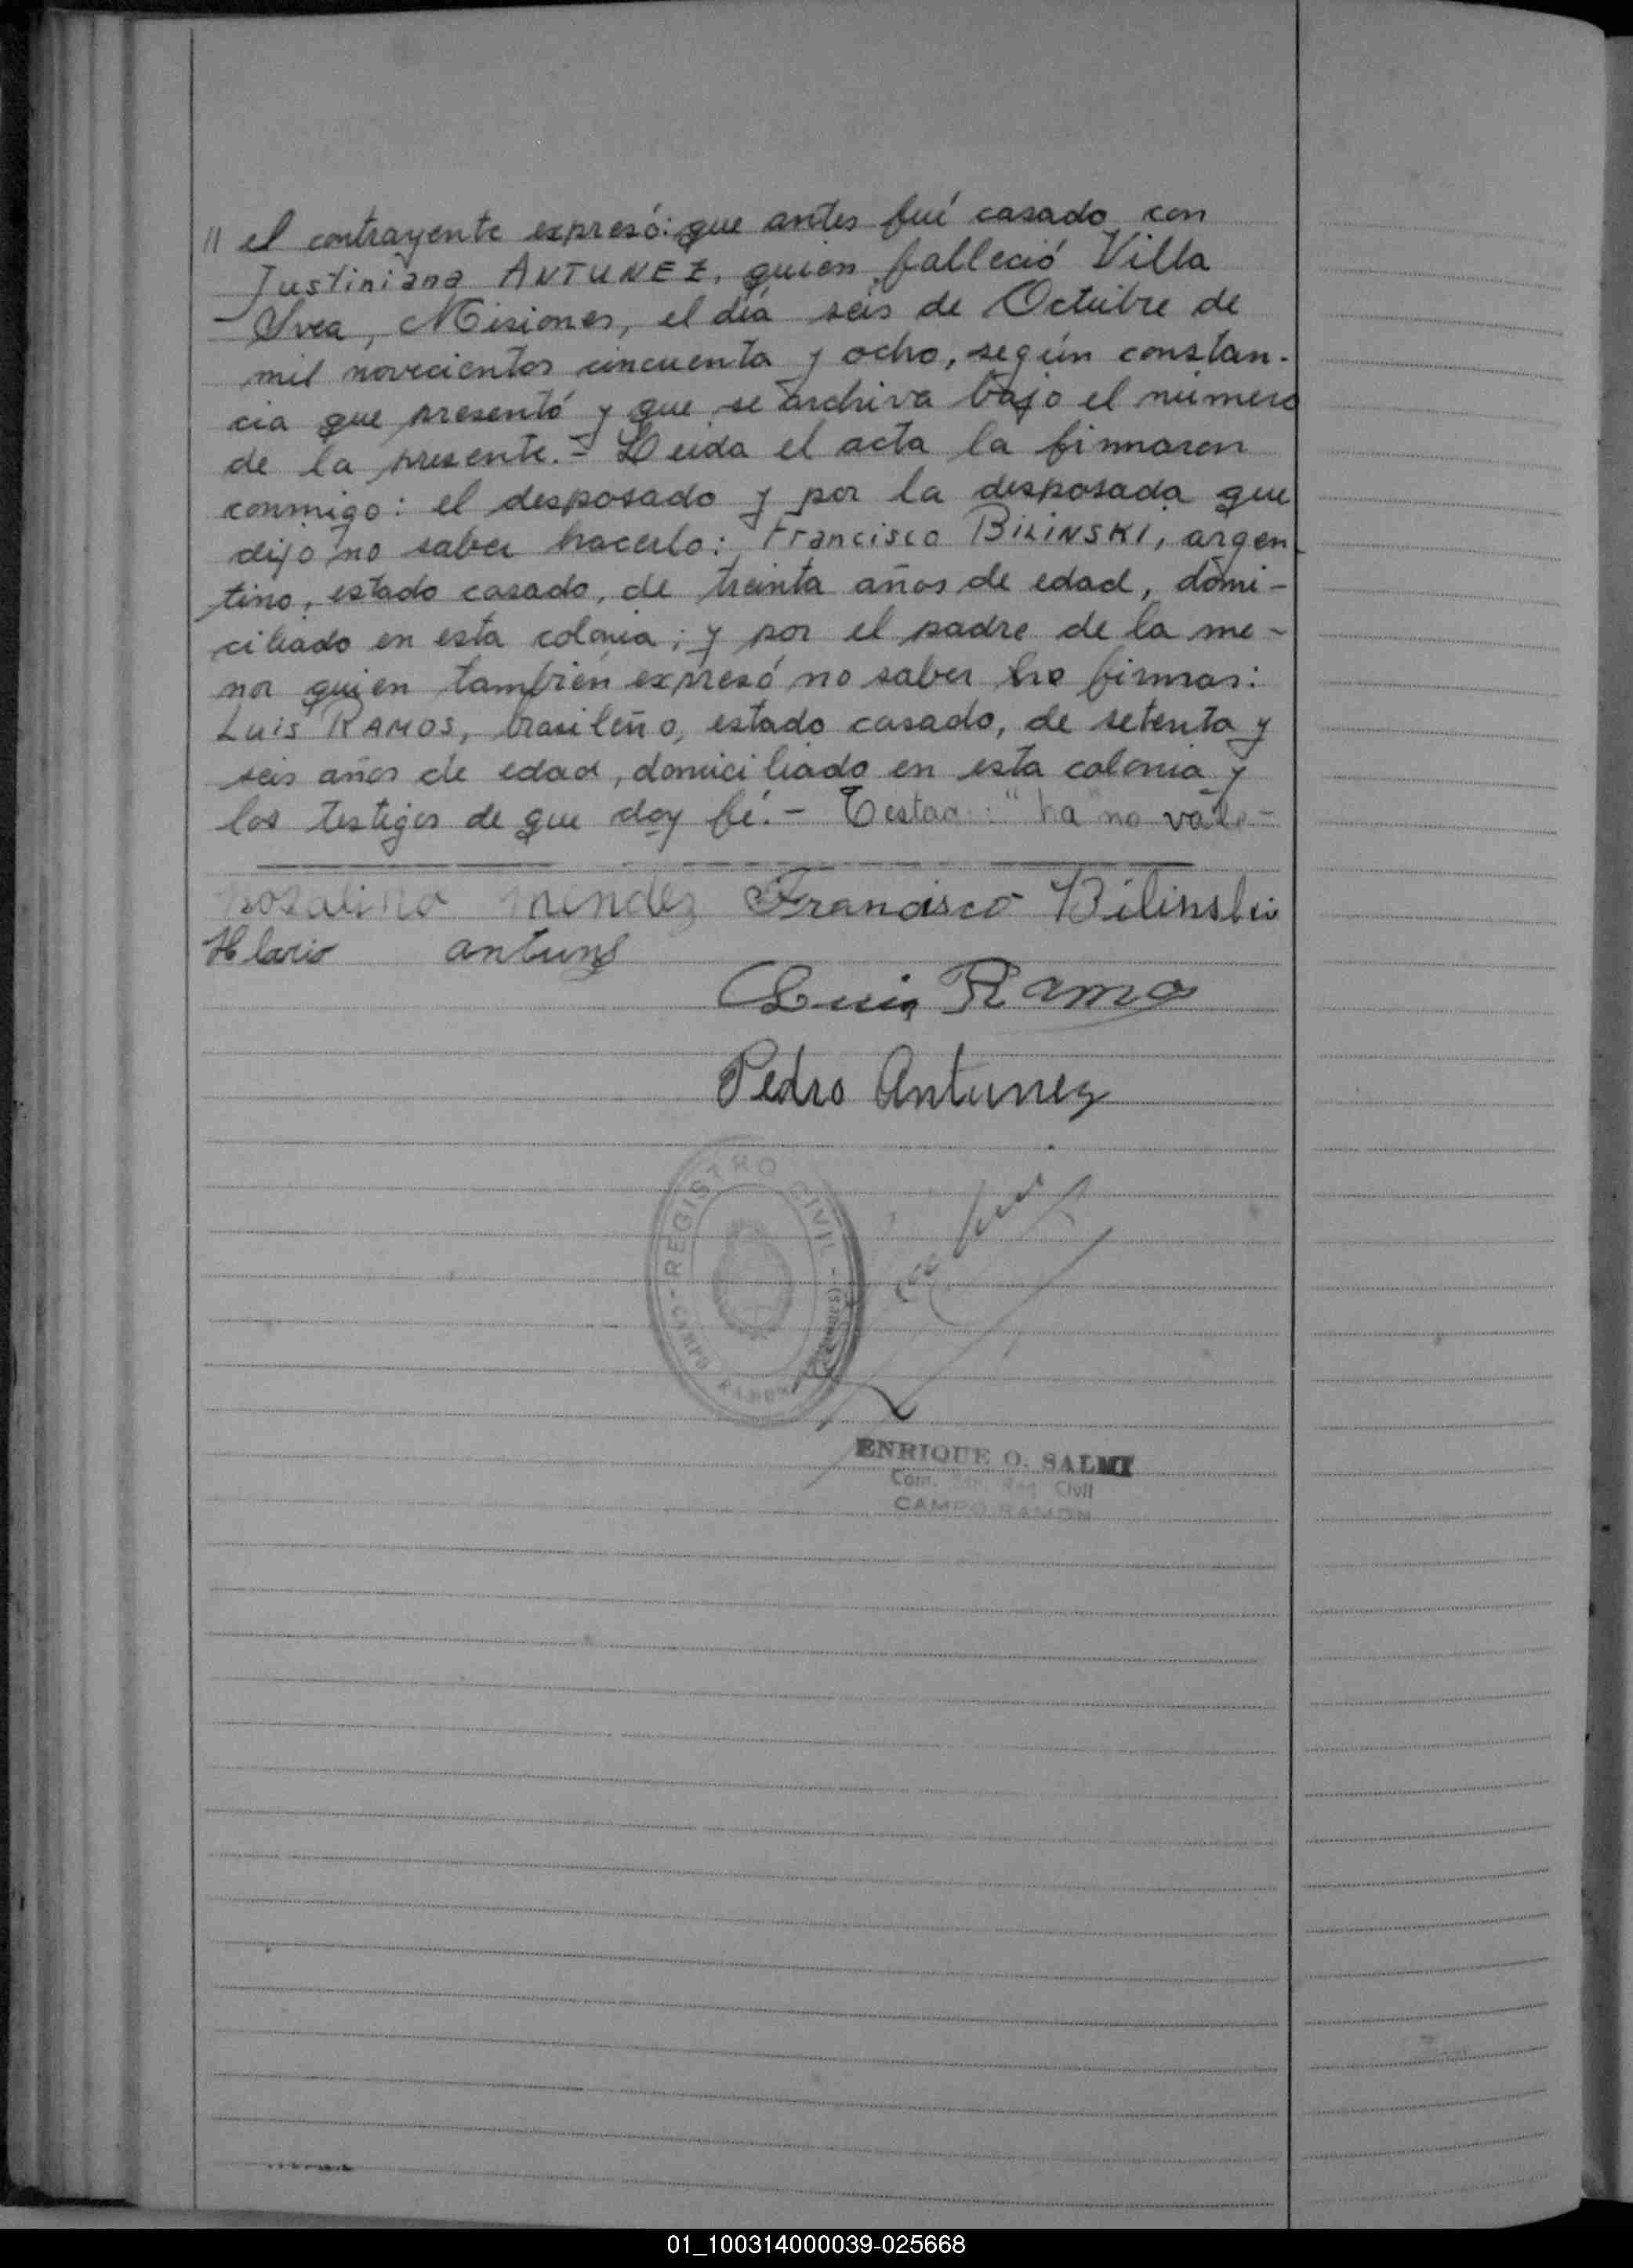 // el contrayente expresó: que antes fué casado con
Justiniana ANTUNEZ, quien falleció Villa
Svea, Misiones, el día seis de Octubre de
mil novecientos cincuenta y ocho, según constan-
cia que presentó y que se archiva bajo el número
de la presente.- Leida el acta la firmaron
conmigo: el desposado y por la desposada que
dijo no saber hacerlo: Francisco BILINSKI, argen-
tino, estado casado, de treinta años de edad, domi-
ciliado en esta colonia; y por el padre de la me-
nor quien también expresó no saber ha firmar:
Luis RAMOS, brasileño, estado casado, de setenta y
seis años de edad, domiciliado en esta colonia y
los testigos de que doy fé.- Testad: "ha" no vale-
Rosalino Mendez Francisco Bilinski
Hlario antunes
Luis Ramos
Pedro Antunez
REGISTRO CIVIL - CAMPO RAMON (Misiones)
ENRIQUE O. SALMI
Civil
CAMPO RAMON
01_100314000039-025668